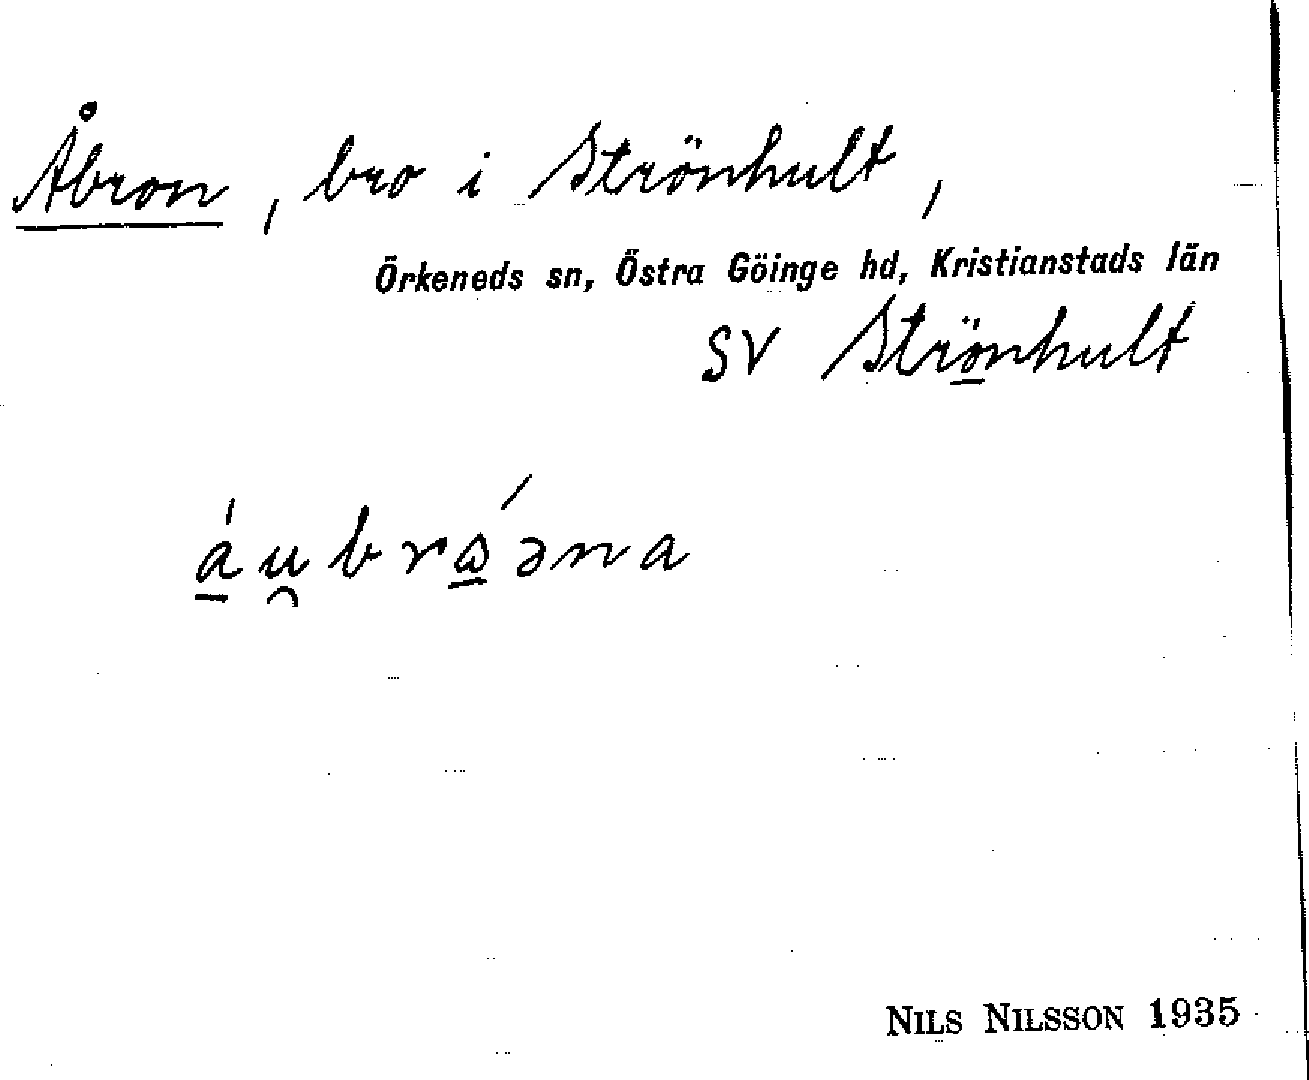 Åbron, bro i Strönhult,
Örkeneds sn, Östra Göinge hd, Kristianstads län
SV Strönhult
áu̯brɷ́əna
NILS NILSSON 1935